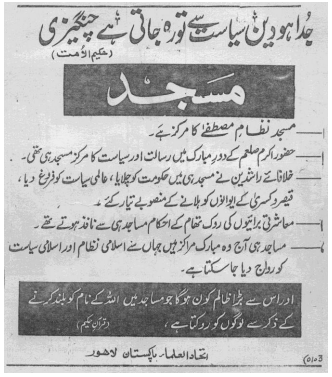 جدا ہو دین سیاست سے تو رہ جاتی ہے چنگیزی
(حکیم الامت)
مسجد
مسجد نظامِ مصطفےٰ کا مرکز ہے۔
حضور اکرم صلعم کے دور مبارک میں رسالت اور سیاست کا مرکز مسجد ہی تھی۔
خلفائے راشدین نے مسجد ہی میں حکومت کو چلایا، عالمی سیاست کو فروغ دیا،
قیصر و کسریٰ کے ایوانوں کو ہلانے کے منصوبے تیار کئے۔
معاشرتی برائیوں کی روک تھام کے احکام مساجد ہی سے نافذ ہوتے تھے۔
مساجد ہی آج وہ مبارک مراکز ہیں جہاں سے اسلامی نظام اور اسلامی سیاست
کو رواج دیا جا سکتا ہے۔
اور اس سے بڑا ظالم کون ہوگا جو مساجد میں اللہ کے نام کو بلند کرنے
کے ذکر سے لوگوں کو روکتا ہے،
(قرآن حکیم)
اتحاد العلماء پاکستان لاہور